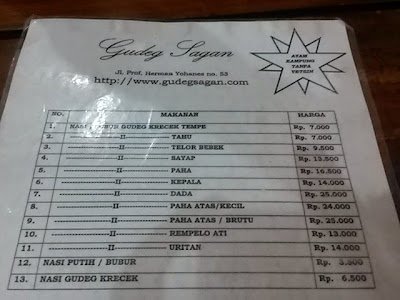 Gudeg Sagan
Jl. Prof. Herman Yohanes no. 53
http://www.gudegsagan.com
AYAM
KAMPUNG
TANPA
VETSIN
NO. MAKANAN HARGA
1. NASI GUDEG KRECEK TEMPE Rp. 7.000
2. --II-- TAHU Rp. 7.000
3. --II-- TELOR BEBEK Rp. 9.500
4. --II-- SAYAP Rp. 13.500
5. --II-- PAHA Rp. 16.500
6. --II-- KEPALA Rp. 14.000
7. --II-- DADA Rp. 25.000
8. --II-- PAHA ATAS/KECIL Rp. 24.000
9. --II-- PAHA ATAS / BRUTU Rp. 25.000
10. --II-- REMPELO ATI Rp. 13.000
11. --II-- URITAN Rp. 14.000
12. NASI PUTIH / BUBUR Rp. 3.500
13. NASI GUDEG KRECEK Rp. 6.500